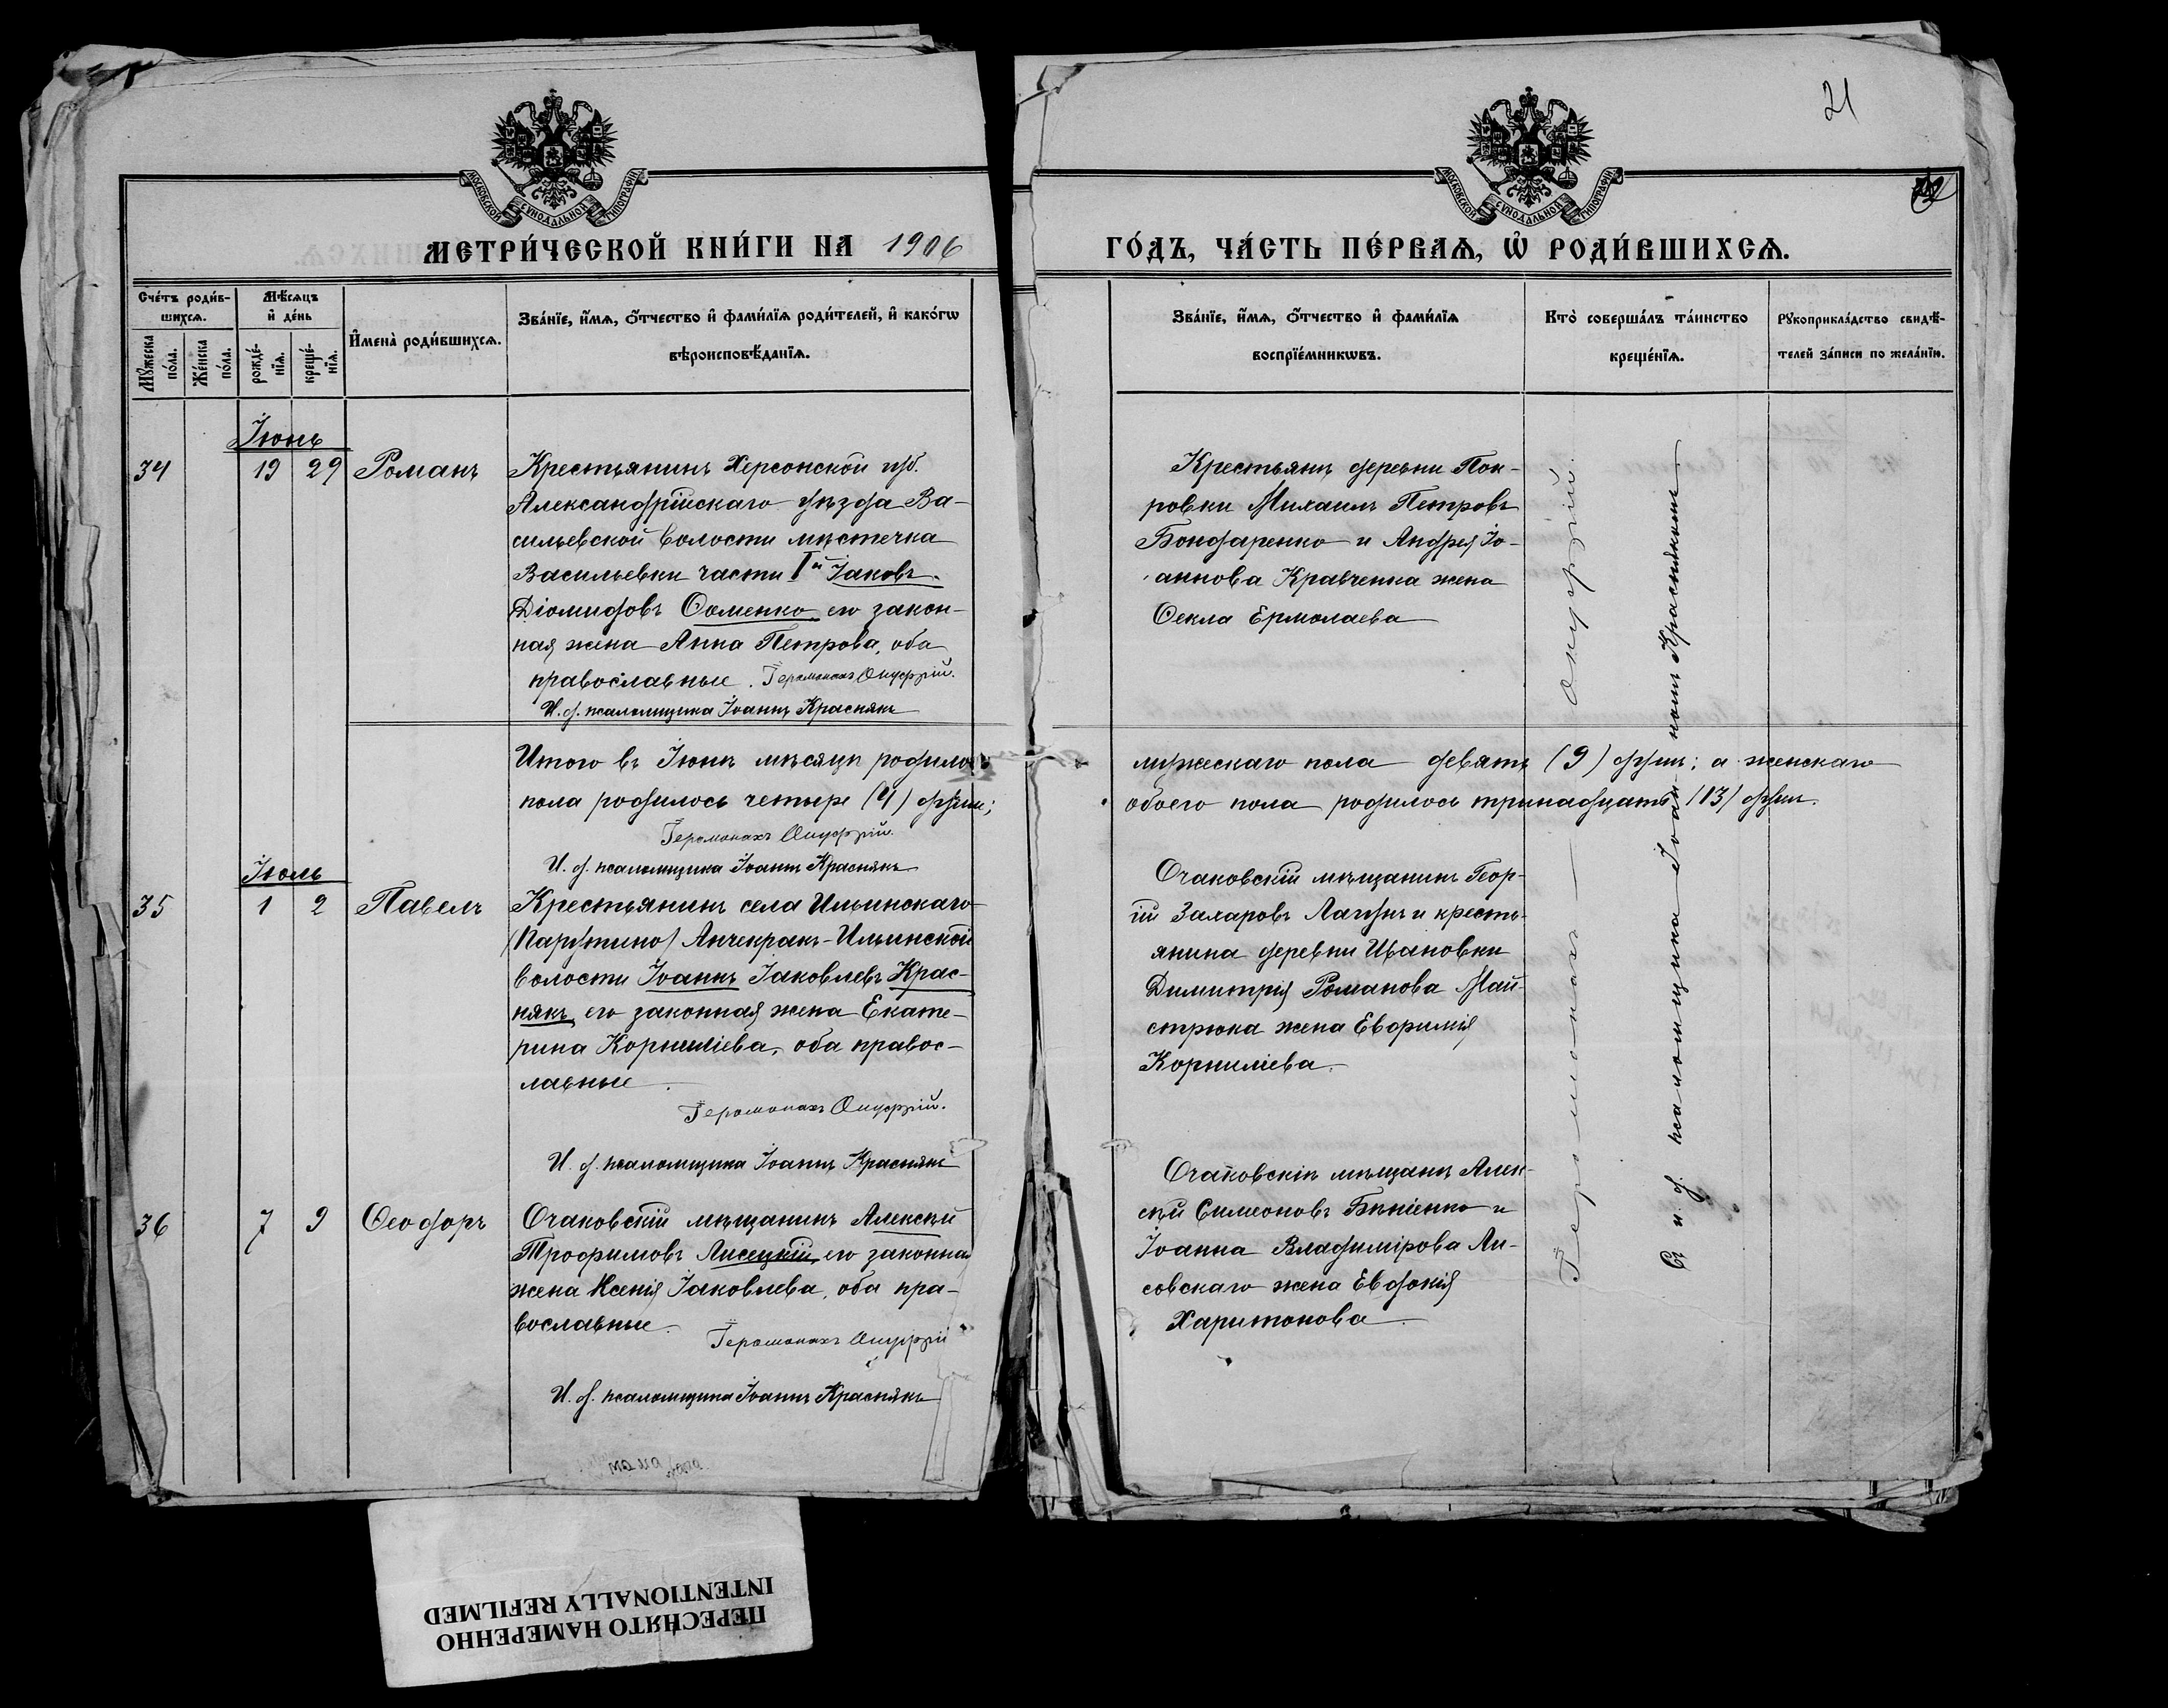 21
МОСКОВСКОЙ СѴНОДАЛЬНОЙ ТИПОГРАФІИ
МОСКОВСКОЙ СѴНОДАЛЬНОЙ ТИПОГРАФІИ
МЕТРИ́ЧЕСКОЙ КНИ́ГИ НА 1906
ГО́ДЪ, ЧА́СТЬ ПЕ́РВАѦ, Ѡ҆ РОДИ́ВШИХСѦ.
Сче́тъ роди́в-
шихсѧ.
Мꙋ́жеска по́ла.
Же́нска по́ла.
Мѣ́сѧцъ
и҆ де́нь
рожде́-
нїѧ.
креще́-
нїѧ.
И҆мена̀ роди́вшихсѧ.
Зва́нїе, и҆́мѧ, ѻ҆́тчество и҆ фами́лїѧ роди́телей, и҆ како́гѡ
вѣроисповѣ́данїѧ.
Зва́нїе, и҆́мѧ, ѻ҆́тчество и҆ фами́лїѧ
воспрїе́мникѡвъ.
Кто̀ соверша́лъ та́инство
креще́нїѧ.
Рꙋкоприкла́дство свидѣ́-
телей за́писи по жела́нїю.
Іюнь
34 19 29 Романъ
Крестьянинъ Херсонской губ.
Александрійскаго уѣзда Ва-
сильевской волости мѣстечка
Васильевки части Iй Іаковъ
Діомидовъ Ѳоменко, его закон-
ная жена Анна Петрова, оба
православные. Іеромонахъ Онуфрій.
И. д. псаломщика Іоаннъ Краснякъ
Крестьянъ деревни Пок-
ровки Михаилъ Петровъ
Бондаренко и Андрея Іо-
аннова Кравченка жена
Ѳекла Ермолаева
Итого въ Іюнѣ мѣсяцѣ родилось
мужескаго пола девять (9) душъ; а женскаго
пола родилось четыре (4) души;
обоего пола родилось тринадцать (13) душъ.
Іеромонахъ Онуфрій.
И. д. псаломщика Іоаннъ Краснякъ
Іюль
35 1 2 Павелъ
Крестьянинъ села Ильинскаго
(Парутино) Анчекракъ-Ильинской
волости Іоаннъ Іаковлевъ Крас-
някъ, его законная жена Екате-
рина Корниліева, оба правос-
лавные.
Іеромонахъ Онуфрій.
И. д. псаломщика Іоаннъ Краснякъ
Очаковскій мѣщанинъ Геор-
гій Захаровъ и кресть-
янина деревни Ивановки
Димитрія Романова Май-
стрюка жена Евфимія
Корниліева.
36 7 9 Ѳеодоръ
Очаковскій мѣщанинъ Алексѣй
Трофимовъ Лисецкій, его законная
жена Ксенія Іаковлева, оба пра-
вославные.
Іеромонахъ Онуфрій
И. д. псаломщика Іоаннъ Краснякъ
Очаковскій мѣщанинъ Алек-
сѣй Симеоновъ и
Іоанна Владимірова Ли-
совскаго жена Евдокія
Харитонова.
Іеромонахъ Онуфрій.
Съ и. д. псаломщика Іоанномъ Краснякомъ
ПЕРЕСНЯТО НАМЕРЕННО
INTENTIONALLY REFILMED